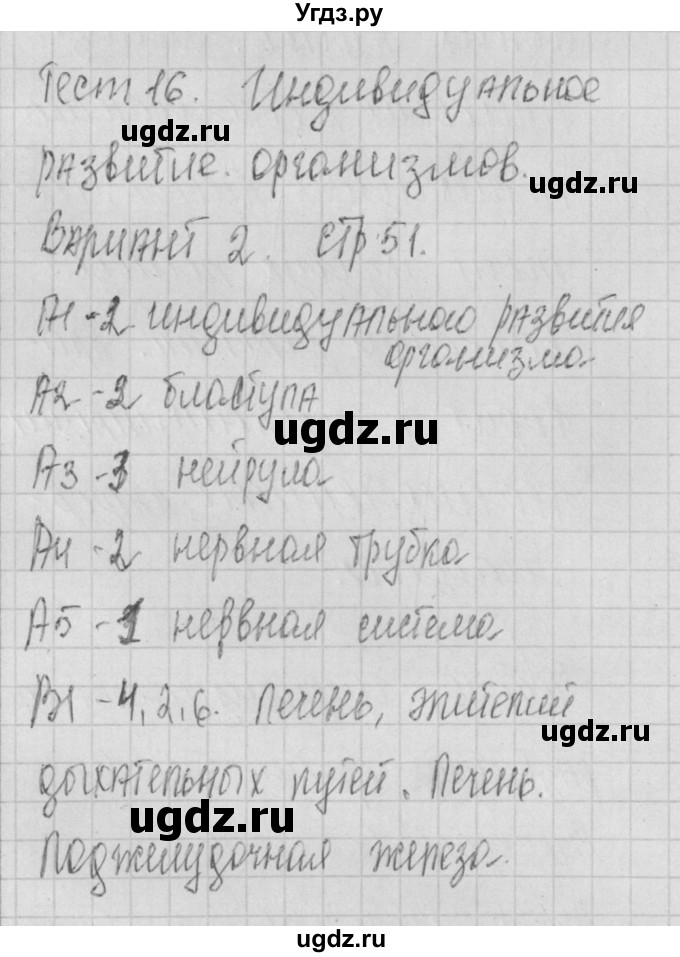 Угдз.ру
Тест 16. Индивидуальное
ugdz.ru
развитие организмов.
ugdz.ru
Вариант 2. стр 51.
А1 - 2 индивидуального развития
организма
А2 - 2 бластула
ugdz.ru
А3 - 3 нейрула
А4 - 2 нервная трубка
А5 - 1 нервная система
ugdz.ru
В1 - 4, 2, 6. Печень, эпителий
ugdz.ru
дыхательных путей. Печень.
ugdz.ru
Поджелудочная железа.
ugdz.ru